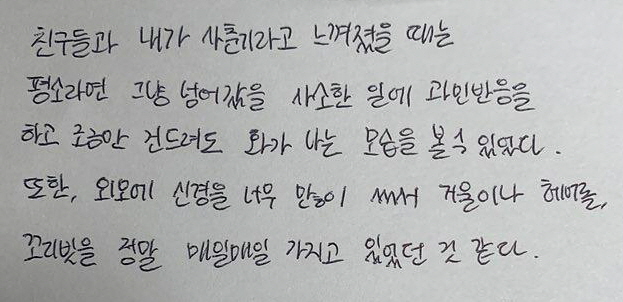 친구들과 내가 사춘기라고 느껴졌을 때는
평소라면 그냥 넘어갔을 사소한 일에 과민반응을
하고 조금만 건드려도 화가 나는 모습을 볼 수 있었다.
또한, 외모에 신경을 너무 많이 써서 거울이나 헤어롤,
꼬리빗을 정말 매일매일 가지고 있었던 것 같다.